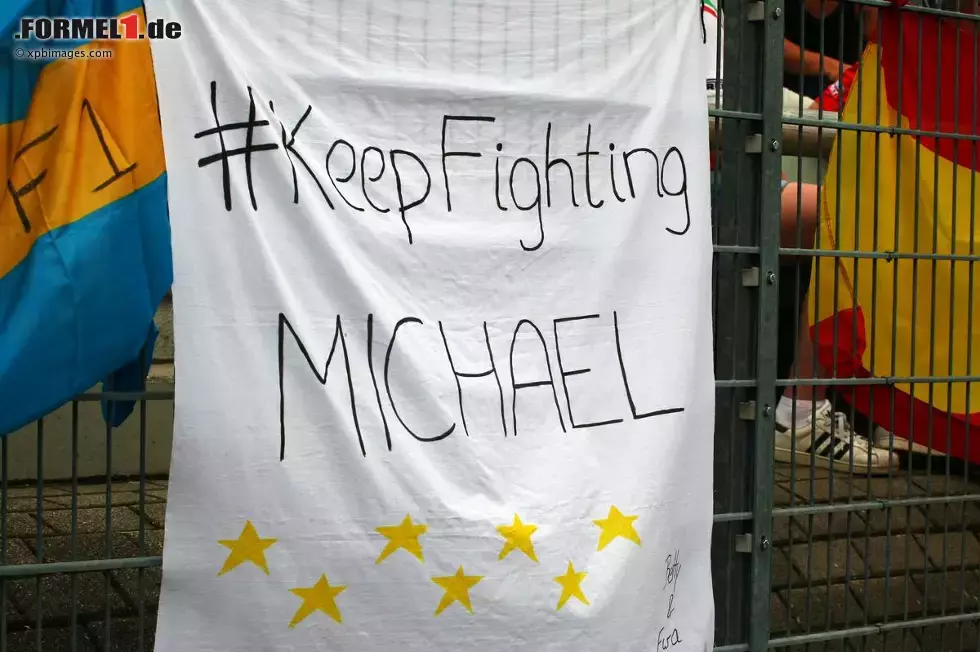 .FORMEL1.de
© xpbimages.com
F1
#KeepFighting
MICHAEL
Betty
&
Ewa